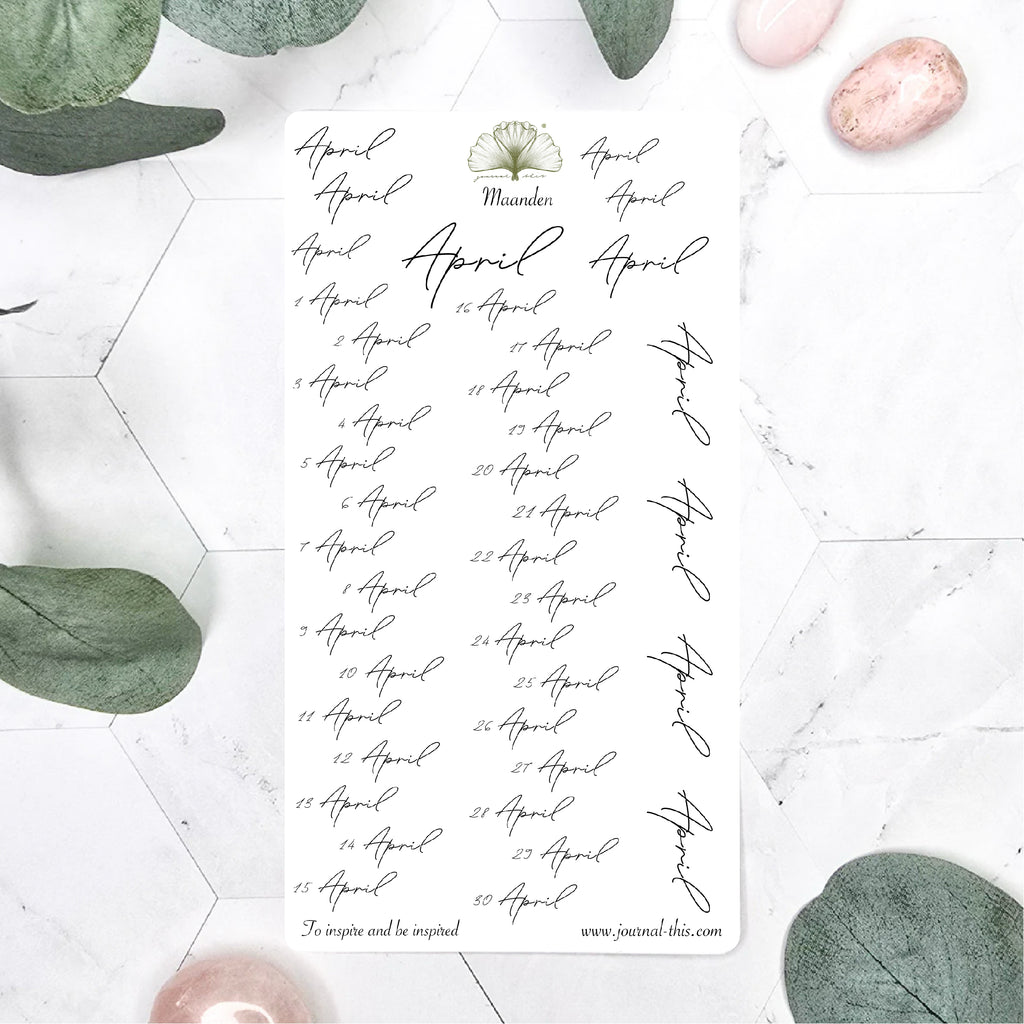 April
April
journal this
Maanden
April
April
April
April
April
1 April
2 April
3 April
4 April
5 April
6 April
7 April
8 April
9 April
10 April
11 April
12 April
13 April
14 April
15 April
16 April
17 April
18 April
19 April
20 April
21 April
22 April
23 April
24 April
25 April
26 April
27 April
28 April
29 April
30 April
April
April
April
April
To inspire and be inspired
www.journal-this.com